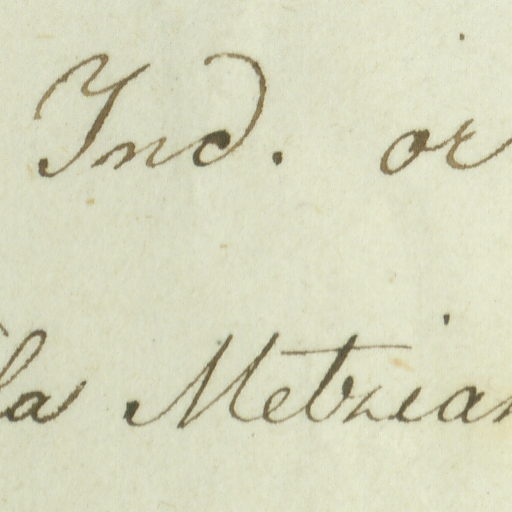 Ind. or
la Metzian